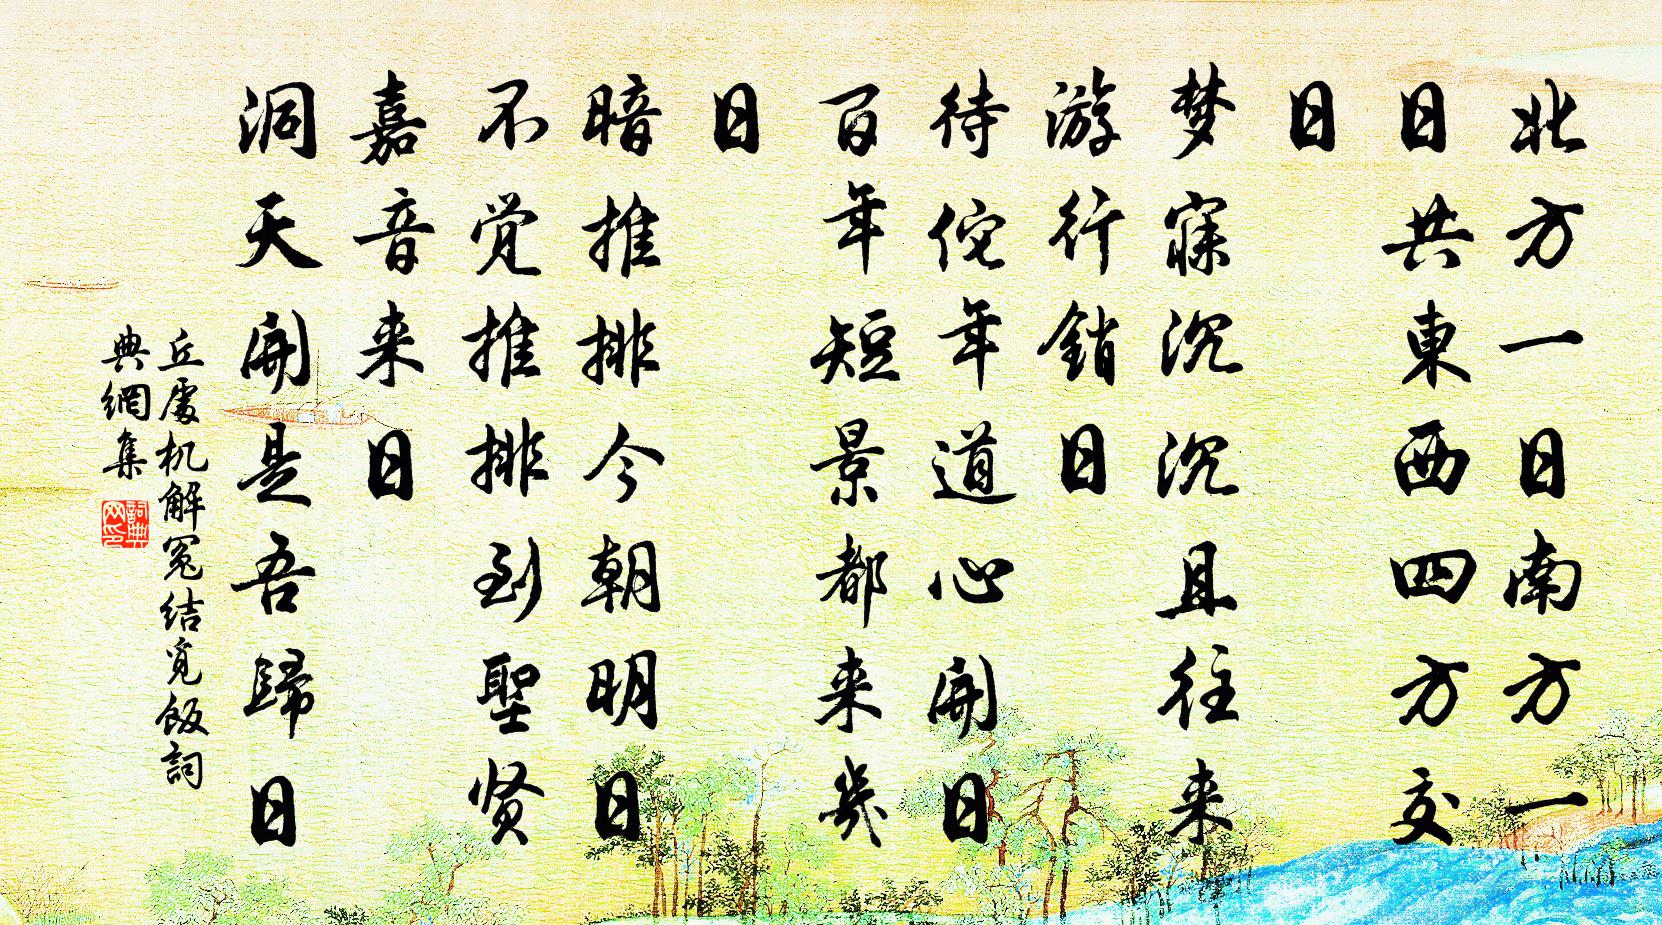 北方一日南方一
日共東西四方交
日
梦寐沉沉且往来
游行銷日
待佗年道心開日
百年短景都来幾
日
暗推排今朝明日
不觉推排到聖贤
嘉音来日
洞天開是吾歸日
丘處机解冤结覓飯詞
典網集
詞典网印